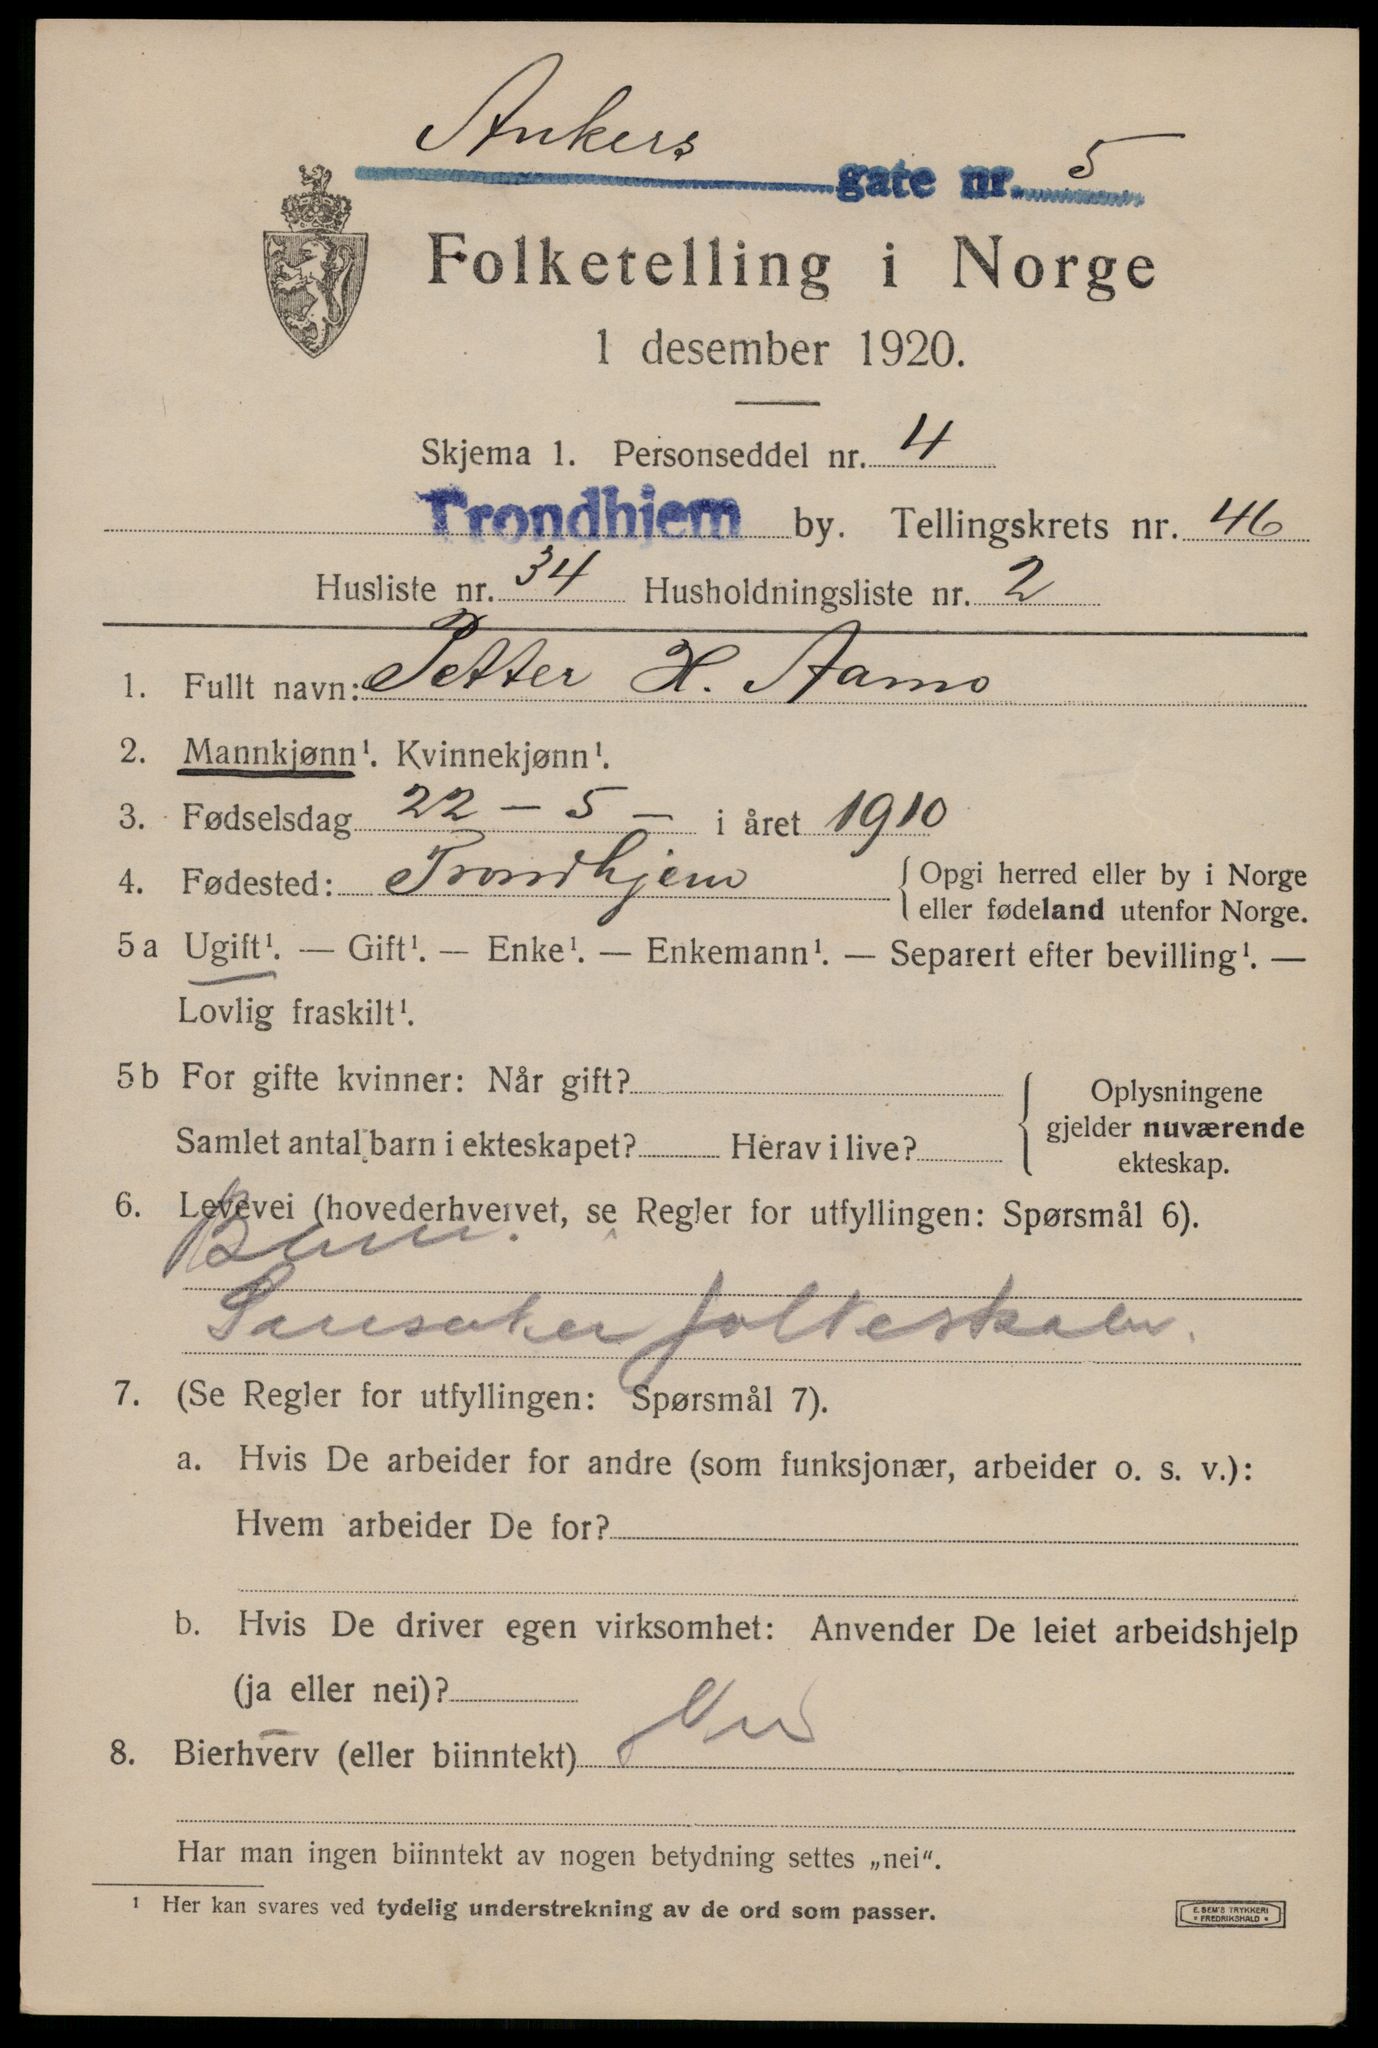 Ankers gate nr. 5
Folketelling i Norge
1 desember 1920.
Skjema 1. Personseddel nr. 4
Trondhjem by. Tellingskrets nr. 46
Husliste nr. 34 Husholdningsliste nr. 2
1. Fullt navn: Petter H. Aamo
2. Mannkjønn¹. Kvinnekjønn¹.
3. Fødselsdag 22 – 5 – i året 1910
4. Fødested: Trondhjem { Opgi herred eller by i Norge
eller fødeland utenfor Norge.
5a Ugift¹. — Gift¹. — Enke¹. — Enkemann¹. — Separert efter bevilling¹. —
Lovlig fraskilt¹.
5b For gifte kvinner: Når gift?
Samlet antal barn i ekteskapet? Herav i live?
{ Oplysningene
gjelder nuværende
ekteskap.
6. Levevei (hovederhvervet, se Regler for utfyllingen: Spørsmål 6).
Barn.
folkeskolen.
7. (Se Regler for utfyllingen: Spørsmål 7).
a. Hvis De arbeider for andre (som funksjonær, arbeider o. s. v.):
Hvem arbeider De for?
b. Hvis De driver egen virksomhet: Anvender De leiet arbeidshjelp
(ja eller nei)?
8. Bierhverv (eller biinntekt) Nei
Har man ingen biinntekt av nogen betydning settes „nei“.
¹ Her kan svares ved tydelig understrekning av de ord som passer.
E. SEM'S TRYKKERI
FREDRIKSHALD